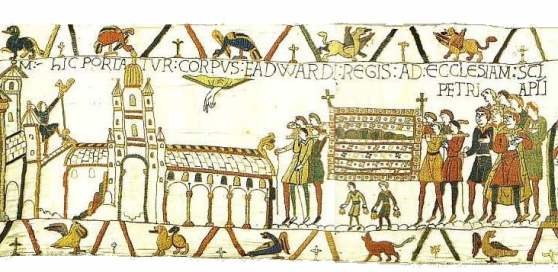 M: HIC PORTATVR: CORPVS: EADWARDI: REGIS: AD: ECCLESIAM: SCI
PETRI APLI